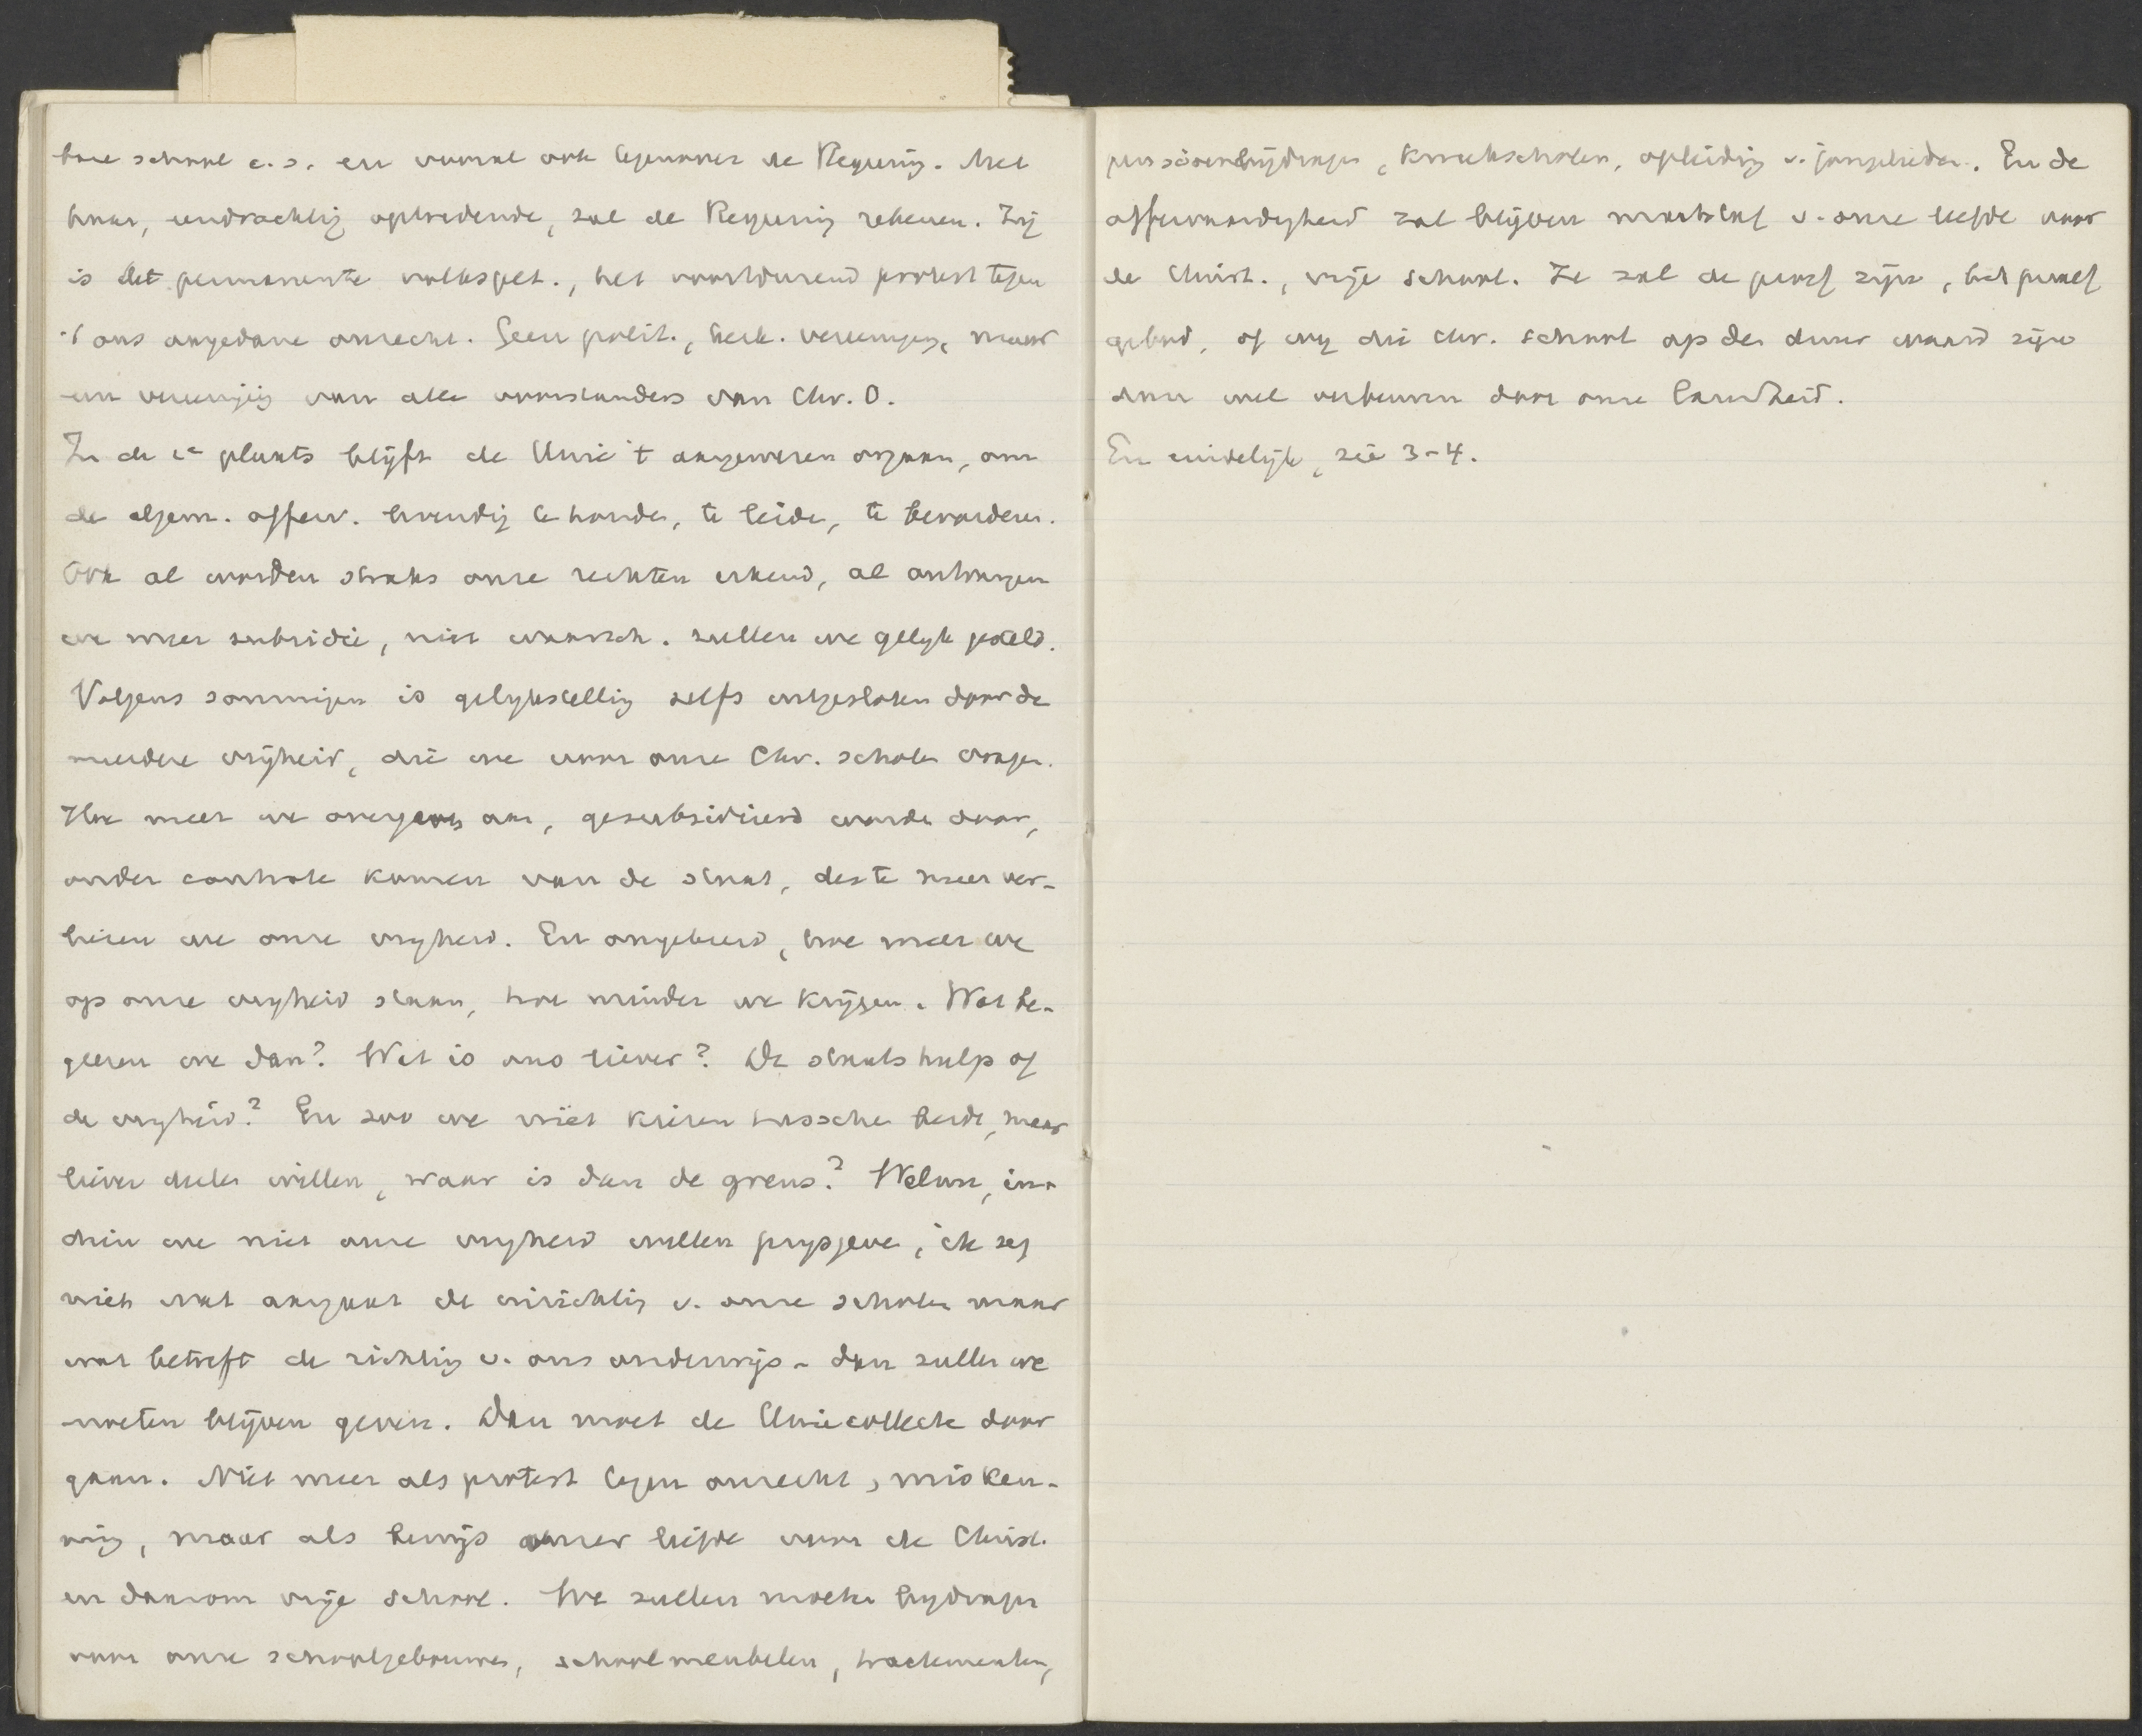 bare school e.s. en vooral ook tegenover de Regering. Met
haar, eendrachtig optredende, zal de Regering rekenen. Zij
is het permanente volkspet., het voortdurend protest tegen
't ons aangedane onrecht. Geen polit., kerk. vereeniging, maar
een vereeniging van alle voorstanders van Chr. O.
In de 1e plaats blijft de Unie 't aangewezen orgaan, om
de algem. offerv. levendig te houden, te leiden, te bevorderen.
Ook al worden straks onze rechten erkend, al ontvangen
we meer subsidie, niet waarsch. zullen we gelijk gesteld.
Volgens sommigen is gelijkstelling zelfs uitgesloten door de
meerdere vrijheid, die we voor onze Chr. scholen vragen.
Hoe meer we overgeven aan, gesubsidieerd worden door,
onder controle komen van de staat, des te meer ver-
liezen we onze vrijheid. En omgekeerd, hoe meer we
op onze vrijheid staan, hoe minder we krijgen. Wat be-
geeren we dan? Wat is ons liever? De staatshulp of
de vrijheid? En zoo we niet kiezen tusschen beide, maar
liever deelen willen, waar is dan de grens? Welnu, in-
dien we niet onze vrijheid willen prijsgeven, ik zeg
niet wat aangaat de inrichting v. onze scholen maar
wat betreft de richting v. ons onderwijs - dan zullen we
moeten blijven geven. Dan moet de Uniecollecte door
gaan. Niet meer als protest tegen onrecht, misken-
ning, maar als bewijs onzer liefde voor de Christ.
en daarom vrije school. We zullen moeten bijdragen
voor onze schoolgebouwen, schoolmeubelen, tractementen,
pensioenbijdragen, kweekscholen, opleiding v. jongelieden. En de
offervaardigheid zal blijven maatstaf v. onze liefde voor
de Christ., vrije school. Ze zal de proef zijn, het proef
gebed, of wij die Chr. school op den duur waard zijn
dan wel verbeuren door onze lauwheid.
En eindelijk, zie 3-4.